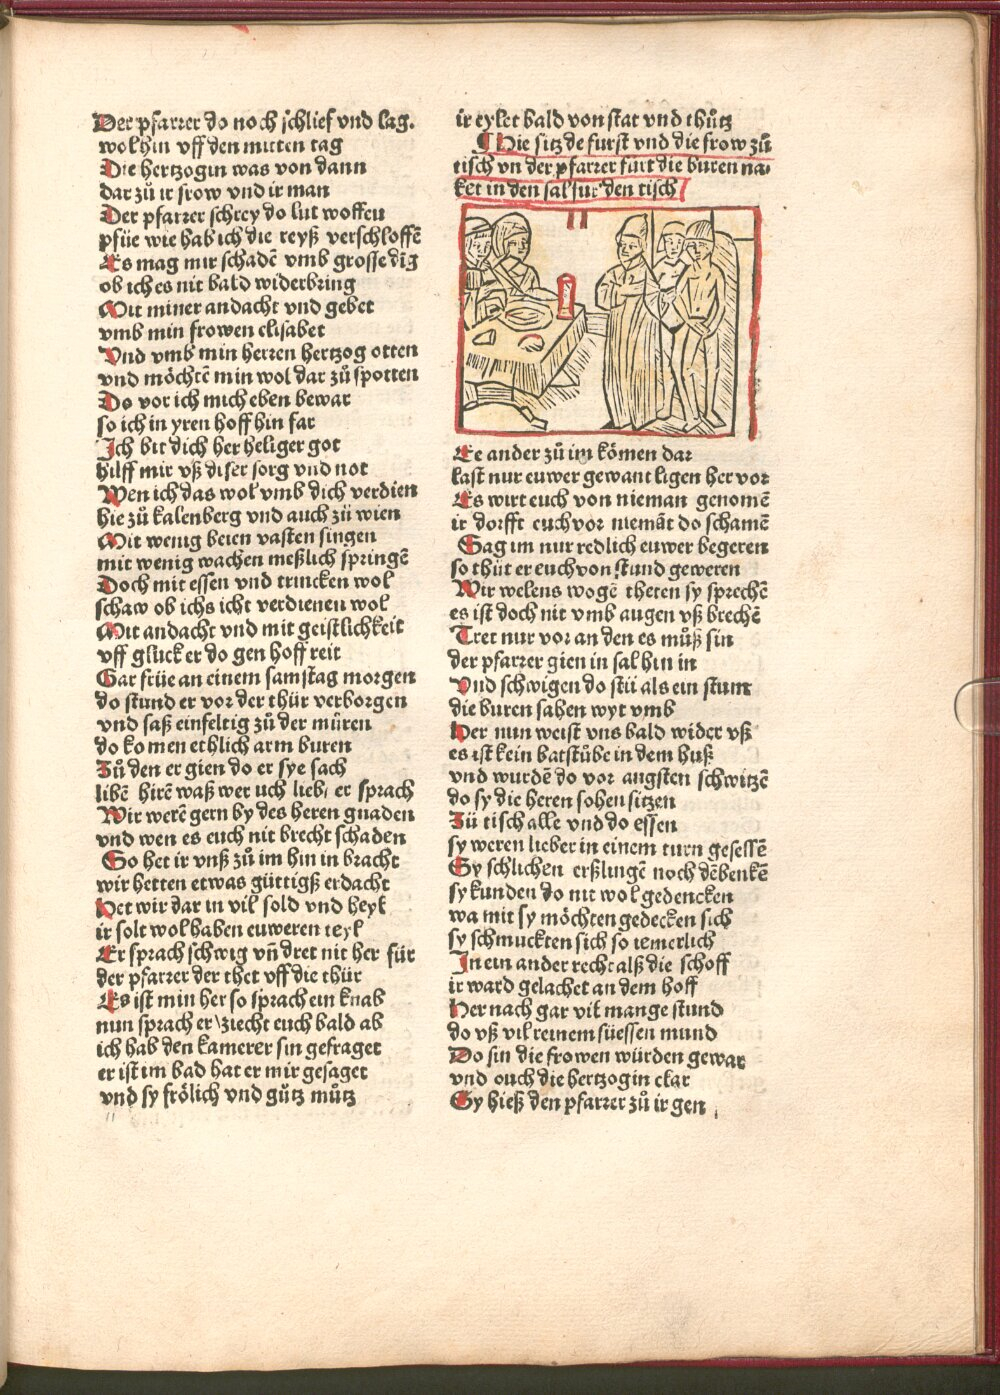 Der pfarrer do noch schlief vnd lag.
wol hin vff den mitten tag
Die hertzogin was von dann
dar zů ir frow vnd ir man
Der pfarrer schrey do lut woffen
pfüe wie hab ich die reyß verschloffē
Es mag mir schadē vmb grosse dīg
ob ich es nit bald widerbring
Mit miner andacht vnd gebet
vmb min frowen elisabet
Vnd vmb min herren hertzog otten
vnd möchtē min wol dar zů spotten
Do vor ich mich eben bewar
so ich in yren hoff hin far
Ich bit dich her heliger got
hilff mir vß diser sorg vnd not
Wen ich das wol vmb dich verdien
hie zů kalenberg vnd auch zü wien
Mit wenig beten vasten singen
mit wenig wachen meßlich springē
Doch mit essen vnd trincken wol
schaw ob ichs icht verdienen wol
Mit andacht vnd mit geistlichkeit
vff gluck er do gen hoff reit
Gar früe an einem samstag morgen
do stund er vor der thür verborgen
vnd saß einfeltig zů der müren
do komen ethlich arm buren
Zů den er gien do er sye sach
libē hirē waß wer uch lieb, er sprach
Wir werē gern by des heren gnaden
vnd wen es euch nit brecht schaden
So het ir vnß zů im hin in bracht
wir hetten etwas güttigß erdacht
Het wir dar in vil sold vnd heyl
ir solt wol haben euweren teyl
Er sprach schwig vn̄ dret nit her für
der pfarrer der thet vff die thür
Es ist min her so sprach ein knab
nun sprach er ziecht euch bald ab
ich hab den kamerer sin gefraget
er ist im bad hat er mir gesaget
vnd sy frölich vnd gůtz můtz
ir eylet bald von stat vnd thůtz
Hie sitz de furst vnd die frow zů
tisch vn der pfarrer fürt die buren na-
ket in den sal fur den tisch
Ee ander zů im kömen dar
last nur euwer gewant ligen her vor
Es wirt euch von nieman genomē
ir dorfft euch vor niemāt do schamē
Sag im nur redlich euwer begeren
so thüt er euch von stund geweren
Wir welens wogē theten sy sprechē
es ist doch nit vmb augen vß brechē
Tret nur vor an den es můß sin
der pfarrer gien in sal hin in
Vnd schwigen do stü als ein stum
die buren sahen wyt vmb
Her nun weist vns bald wider vß
es ist kein batstůbe in dem huß
vnd wurdē do vor angsten schwitzē
do sy die heren sohen sitzen
Zü tisch alle vnd do essen
sy weren lieber in einem turn gesessē
Sy schlichen erßlingē noch dē benkē
sy kunden do nit wol gedencken
wa mit sy möchten gedecken sich
sy schmuckten sich so iemerlich
In ein ander recht alß die schoff
ir ward gelachet an dem hoff
Her nach gar vil mange stund
do vß vil reinem süessen mund
Do sin die frowen würden gewar
vnd ouch die hertzogin clar
Sy hieß den pfarrer zů ir gen